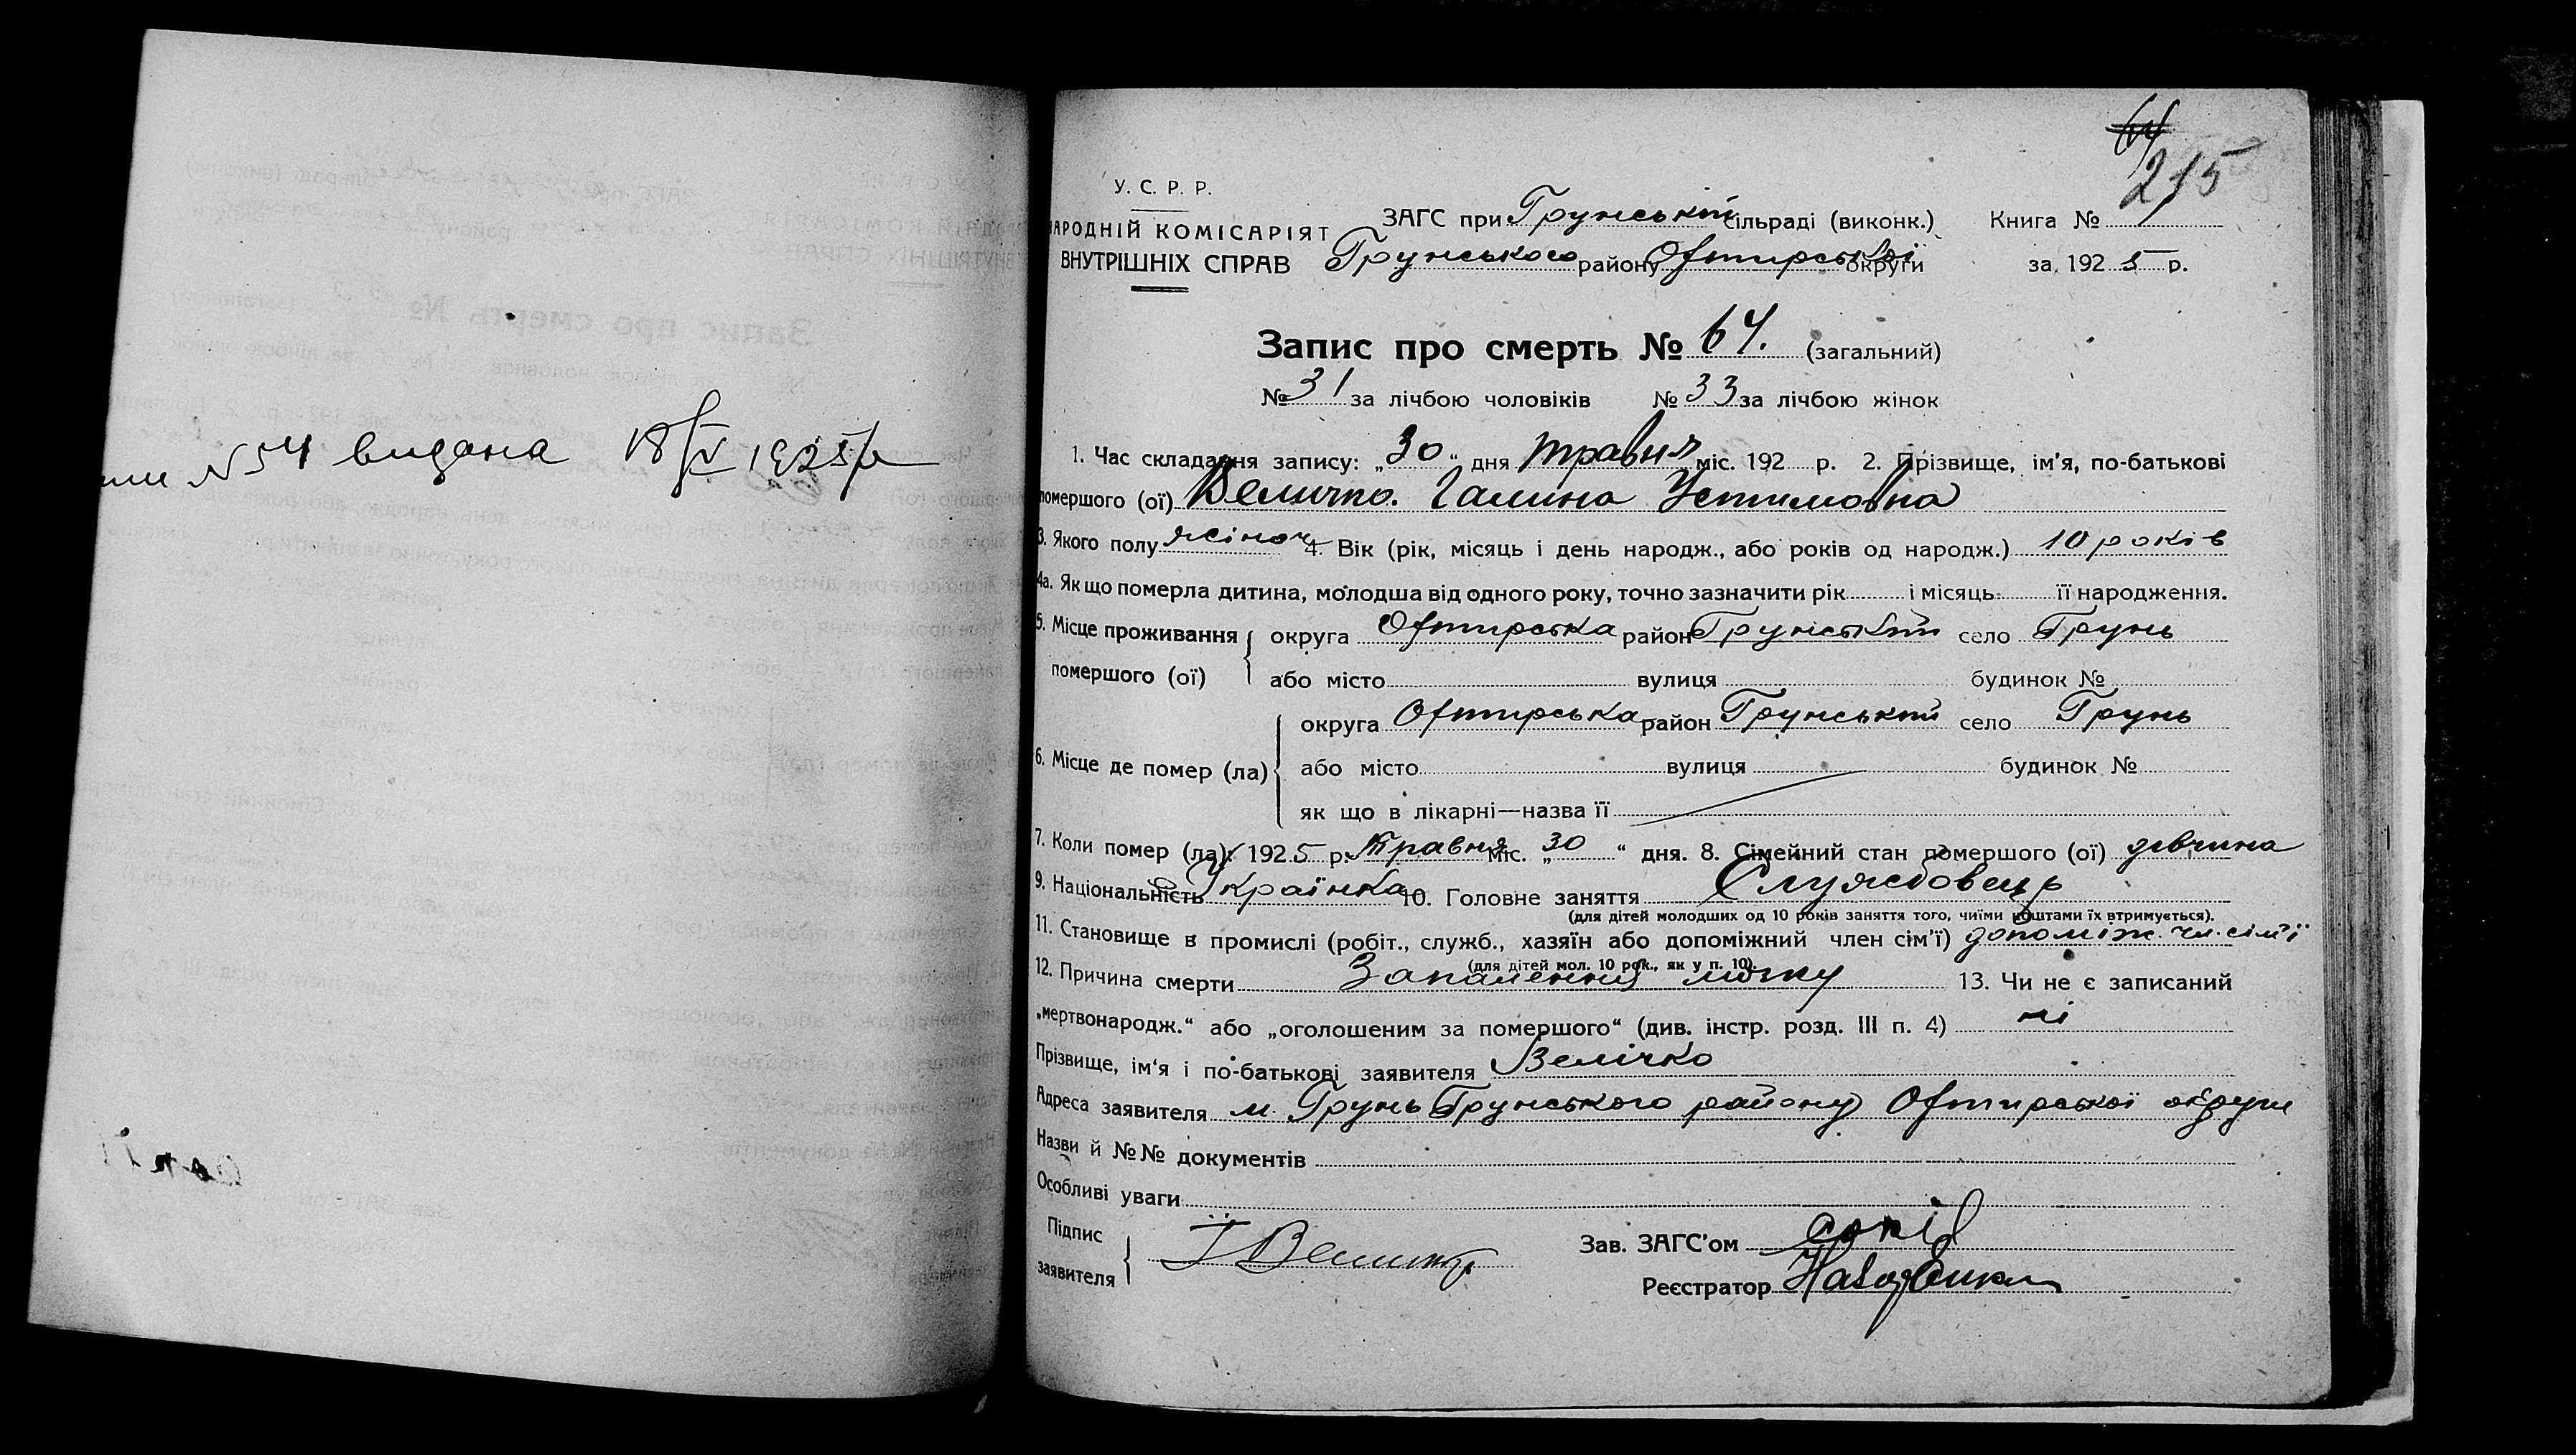 № 54 видана 18/V 1925 р
64
215
У. С. Р. Р.
НАРОДНІЙ КОМІСАРІЯТ
ВНУТРІШНІХ СПРАВ
ЗАГС при Грунській сільраді (виконк.)
Книга №
Грунського району Охтирської округи
за 1925 р.
Запис про смерть № 64. (загальний)
№ 31 за лічбою чоловіків № 33 за лічбою жінок
1. Час складання запису: „30“ дня травня міс. 192 р. 2. Прізвище, ім’я, по-батькові
помершого (ої) Величко. Галина Устимовна
3. Якого полу жіноч 4. Вік (рік, місяць і день народж., або років од народж.) 10 років
4а. Як що померла дитина, молодша від одного року, точно зазначити рік і місяць її народження.
5. Місце проживання округа Охтирська район Грунський село Грунь
помершого (ої) або місто вулиця будинок №
округа Охтирська район Грунський село Грунь
6. Місце де помер (ла) або місто вулиця будинок №
як що в лікарні—назва її
7. Коли помер (ла): 1925 р. Травня міс. „30“ дня. 8. Сімейний стан помершого (ої) дівчина
9. Національність Українка 10. Головне заняття Службовець
(для дітей молодших од 10 років заняття того, чиїми коштами їх втримується).
11. Становище в промислі (робіт., служб., хазяїн або допоміжний член сім’ї) допоміж. чл. сім’ї
(для дітей мол. 10 рок., як у п. 10).
12. Причина смерти Запалення мозку 13. Чи не є записаний
„мертвонародж.“ або „оголошеним за помершого“ (див. інстр. розд. III п. 4) ні
Прізвище, ім‘я і по-батькові заявителя Велічко
Адреса заявителя м. Грунь Грунського району Охтирської округи
Назви й №№ документів
Особливі уваги
Підпис
заявителя
Величко
Зав. ЗАГС’ом
Реєстратор